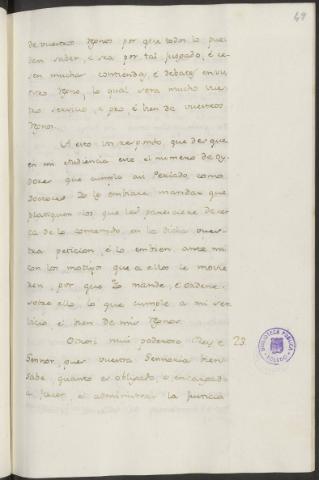 49
de vuestros Rgnos por que todos lo pue
dan saber, é sea por tal juzgado, é ce-
sen muchas contiendas, é debates en vu
estro Rgno, lo qual sera mucho vues
tro servicio, é pro, é bien de vuestros
Rgnos.
A esto vos respondo, que des que
en mi Audiencia este el numero de Oy
dores que cumpla asi Perlado, como
Doctores Yo lo embiare mandar que
platiquen los que les paresciere de cer
ca de lo contenido en la dicha vues-
tra peticion, é lo embien ante mi
con los motivos que a ellos le movie
ren por que Yo mande, é ordene
sobre ello, lo que cumple a mi ser
vicio, é bien de mis Rgnos
Otrosi mui poderoso Rey é 23.
Sennor, pues vuestra Sennoria bien
sabe quanto es obligado, é encargado
a facer, é administrar la Justicia
BIBLIOTECA PUBLICA
TOLEDO